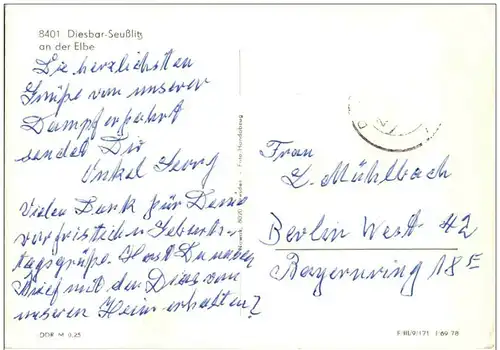 8401 Diesbar-Seußlitz
an der Elbe
Die herzlichsten
Grüße von unserer
Dampferfahrt
sendet Dir
Onkel Georg
Vielen Dank für Deine
vorfristlichen Geburts-
tagsgrüße. Hast Du
Brief mit den Dias von
unserem Heim erhalten?
Frau
L. Mühlbach
Berlin West 42
Bayernring 18E
DDR M 0,25